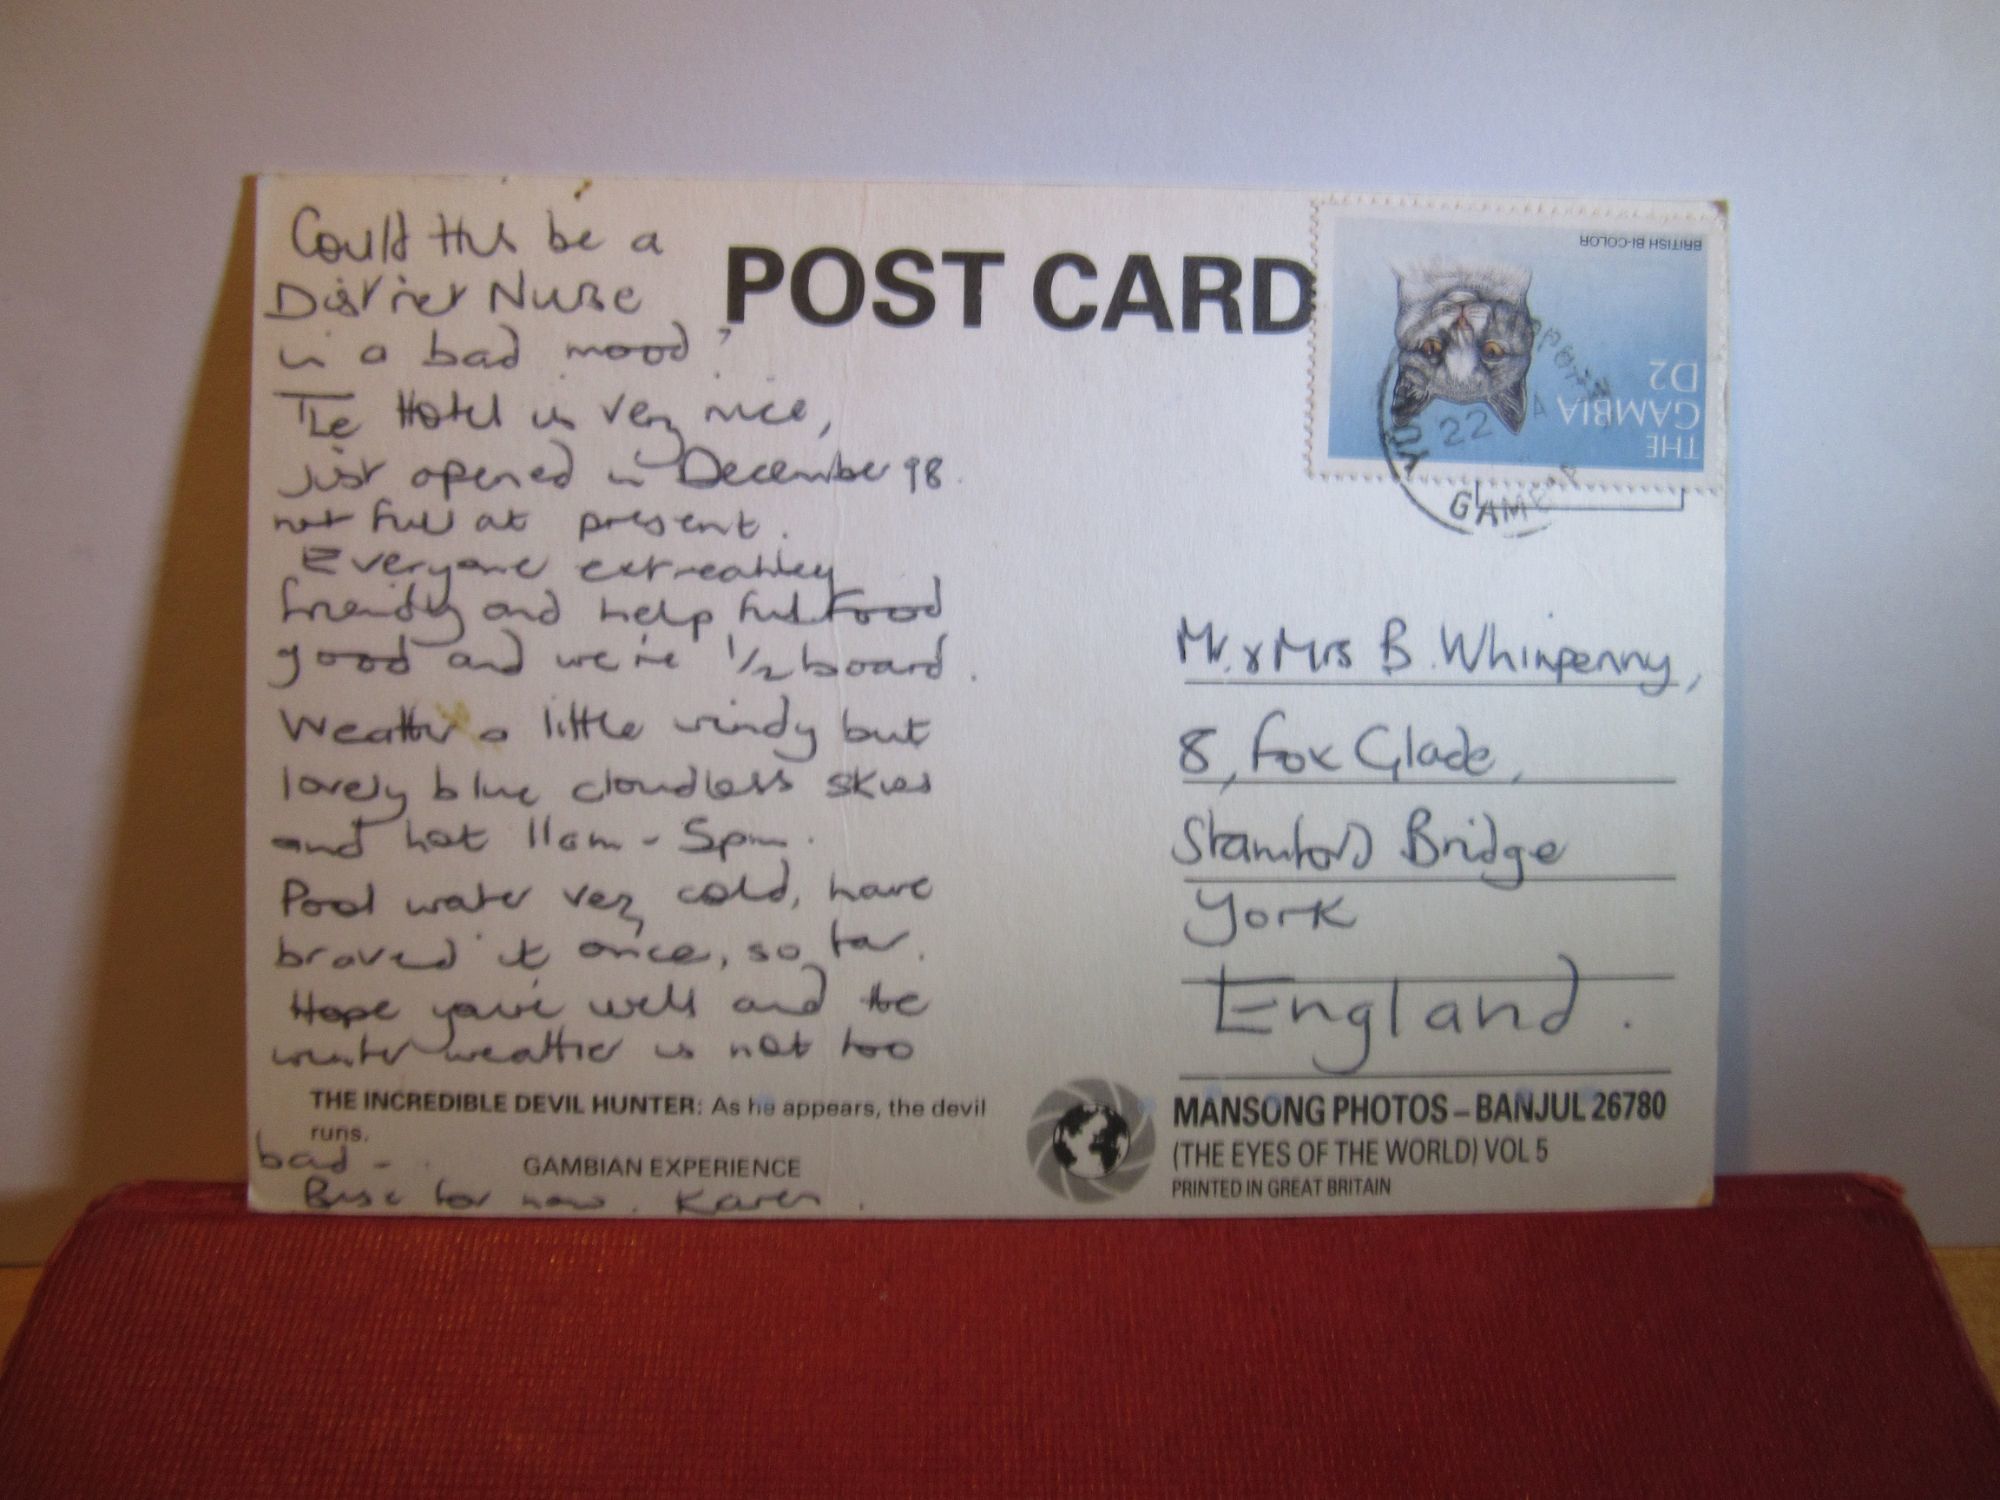 Could this be a
District Nurse
in a bad mood?
The Hotel is very nice,
just opened in December 98.
not full at present.
Everyone extreahley
friendly and help ful Food
good and we're 1/2 board.
Weather a little windy but
lovely blue cloudless skies
and hot 11am - 5pm.
Pool water very cold, have
braved it once, so far.
Hope you're well and the
winter weather is not too
bad -
for now. Karen.
THE INCREDIBLE DEVIL HUNTER: As he appears, the devil
runs.
GAMBIAN EXPERIENCE
POST CARD
BRITISH BI-COLOR
THE
GAMBIA
D2
22
GAMBIA
Mr. & Mrs B. Whinpenny,
8, Fox Glade,
Stamford Bridge
York
England.
MANSONG PHOTOS – BANJUL 26780
(THE EYES OF THE WORLD) VOL 5
PRINTED IN GREAT BRITAIN